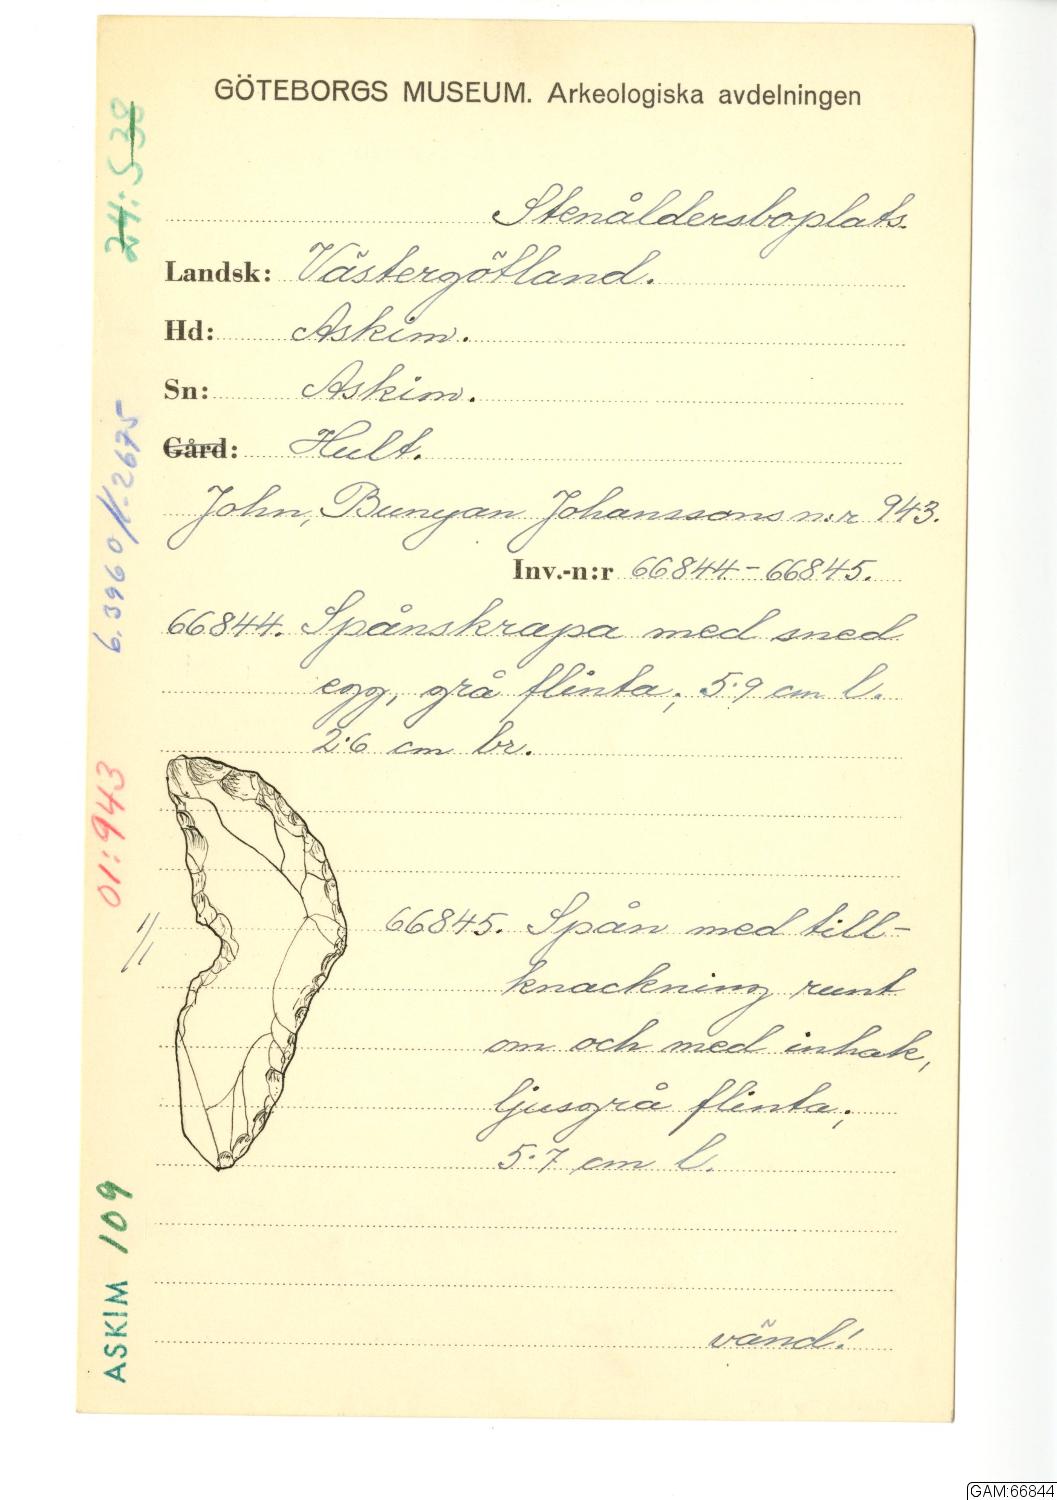 GÖTEBORGS MUSEUM. Arkeologiska avdelningen
Stenåldersboplats.
Landsk: Västergötland.
Hd: Askim.
Sn: Askim.
Gård: Hult.
John, Bunyan Johanssons n:r 943.
Inv.-n:r 66844-66845.
66844. Spånskrapa med sned
egg, grå flinta; 5.9 cm l.
2.6 cm br.
66845. Spån med till-
knackning runt
om och med inhak,
ljusgrå flinta;
5.7 cm l.
vänd!
1/1
24:S38
6.3960//-2675
01:943
ASKIM 109
GAM:66844